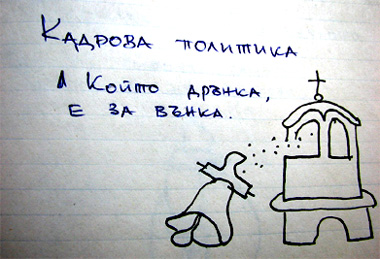 Кадрова политика
Който дрънка,
е за вънка.